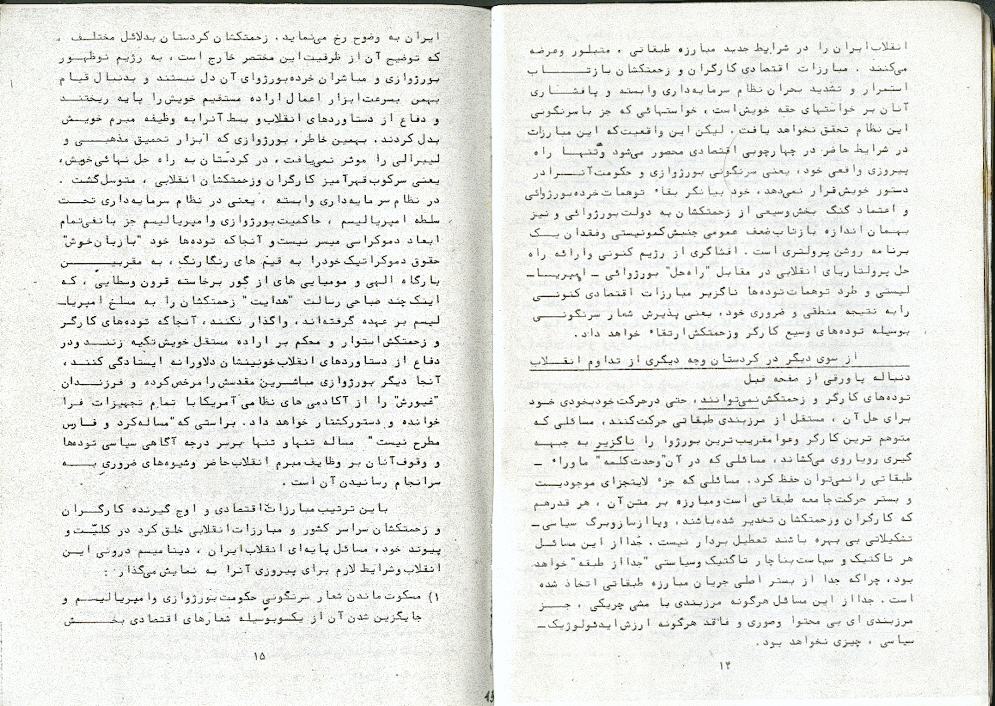 انقلاب ایران را در شرایط جدید مبارزه طبقاتی ، متبلور وعرضه
می‌کنند . مبارزات اقتصادی کارگران و زحمتکشان بازتاب
استمرار و تشدید بحران نظام سرمایه‌داری وابسته و پافشاری
آنان بر خواستهای حقه خویش است ، خواستهائی که جز با سرنگونی
این نظام تحقق نخواهد یافت . لیکن این واقعیت که این مبارزات
در شرایط حاضر در چهارچوبی اقتصادی محصور می‌شود و تنها راه
پیروزی واقعی خود ، یعنی سرنگونی بورژوازی و حکومت آنرا در
دستور خویش قرار نمی‌دهد ، خود بیانگر بقاء توهمات خرده‌بورژوائی
و اعتماد گنگ بخش وسیعی از زحمتکشان به دولت بورژوائی و نیز
بهمان اندازه بازتاب ضعف عمومی جنبش کمونیستی وفقدان یک
برنامه روشن پرولتری است . افشاگری از رژیم کنونی وارائه راه
حل پرولتاریای انقلابی در مقابل "راه‌حل" بورژوائی ـ امپریا‌ـ
لیستی و طرد توهمات توده‌ها ناگزیر مبارزات اقتصادی کنونی
را به نتیجه منطقی و ضروری خود ، یعنی پذیرش شعار سرنگونی
بوسیله توده‌های وسیع کارگر وزحمتکش ارتقاء خواهد داد .
از سوی دیگر در کردستان وجه دیگری از تداوم انقلاب
دنباله پاورقی از صفحه قبل
توده‌های کارگر و زحمتکش نمی‌توانند ، حتی در حرکت خودبخودی خود
برای حل آن ، مستقل از مرزبندی طبقاتی حرکت کنند ، مسائلی که
متوهم ترین کارگر وعوامفریب‌ترین بورژوا را ناگزیر به جبهه
گیری رویاروی می‌کشاند ، مسائلی که در آن "وحدت کلمه" ماوراء ـ
طبقاتی را نمی‌توان حفظ کرد . مسائلی که جزء لایتجزای موجودیت
و بستر حرکت جامعه طبقاتی است ومبارزه بر متن آن ، هر قدر هم
که کارگران وزحمتکشان تخدیر شده باشند ، ویا از سازوبرگ سیاسی ـ
تشکیلاتی بی بهره باشند تعطیل بردار نیست . جدا از این مسائل
هر تاکتیک و سیاست بناچار تاکتیک وسیاستی "جدا از طبقه" خواهد
بود ، چراکه جدا از بستر اصلی جریان مبارزه طبقاتی اتخاذ شده
است . جدا از این مسائل هرگونه مرزبندی با مشی چریکی ، جز
مرزبندی ای بی محتوا وصوری و فاقد هرگونه ارزش ایدئولوژیک ـ
سیاسی ، چیزی نخواهد بود .
۱۴
ایران به وضوح رخ می‌نماید ، زحمتکشان کردستان بدلائل مختلف ،
که توضیح آن از ظرفیت این مختصر خارج است ، به رژیم نوظهور
بورژوازی و مباشران خرده‌بورژوای آن دل نبستند و بدنبال قیام
بهمن بسرعت ابزار اعمال اراده مستقیم خویش را پایه ریختند
و دفاع از دستاوردهای انقلاب و بسط آنرا به وظیفه مبرم خویش
بدل کردند . بهمین خاطر ، بورژوازی که ابزار تحمیق مذهبی و
لیبرالی را موثر نمی‌یافت ، در کردستان به راه حل نهائی خویش ،
یعنی سرکوب قهرآمیز کارگران وزحمتکشان انقلابی ، متوسل گشت .
در نظام سرمایه‌داری وابسته ، یعنی در نظام سرمایه‌داری تحت
سلطه امپریالیسم ، حاکمیت بورژوازی وامپریالیسم جز با نفی تمام
ابعاد دموکراسی میسر نیست و آنجا که توده‌ها خود "با زبان خوش"
حقوق دموکراتیک خود را به قیم های رنگارنگ ، به مقربین
بارگاه الهی و مومیایی های از گور برخاسته قرون وسطایی ، که
اینک چند صباحی رسالت "هدایت" زحمتکشان را به مسلخ امپریا‌ـ
لیسم بر عهده گرفته‌اند ، واگذار نکنند ، آنجا که توده‌های کارگر
و زحمتکش استوار و محکم بر اراده مستقل خویش تکیه زنند ودر
دفاع از دستاوردهای انقلاب خونینشان دلاورانه ایستادگی کنند ،
آنجا دیگر بورژوازی مباشرین مقدسش را مرخص کرده و فرزندان
"غیورش" را از آکادمی های نظامی آمریکا با تمام تجهیزات فرا
خوانده و دستور کشتار خواهد داد . براستی که "مساله کرد و فارس
مطرح نیست" مساله تنها و تنها بر سر درجه آگاهی سیاسی توده‌ها
و وقوف آنان بر وظایف مبرم انقلاب حاضر وشیوه‌های ضروری به
سرانجام رسانیدن آن است .
با این ترتیب مبارزات اقتصادی و اوج گیرنده کارگران
و زحمتکشان سراسر کشور و مبارزات انقلابی خلق کرد در کلیت و
پیوند خود ، مسائل پایه‌ای انقلاب ایران ، دینامیسم درونی این
انقلاب وشرایط لازم برای پیروزی آنرا به نمایش می‌گذارد :
۱) مسکوت ماندن شعار سرنگونی حکومت بورژوازی وامپریالیسم و
جایگزین شدن آن از یکسو بوسیله شعارهای اقتصادی بخش
۱۵